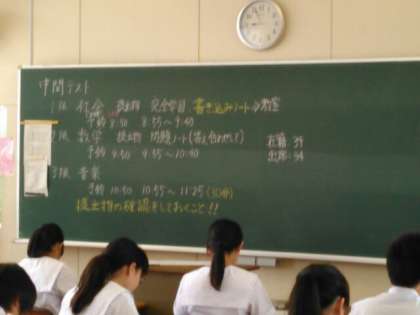 中間テスト
1限 社会 提出物 完全学習 書き込みノート→教室
予鈴 8:50 8:55〜9:40
2限 数学 提出物 問題ノート(答え合わせして)
予鈴 9:50 9:55〜10:40
在籍 35
出席 34
3限 音楽
予鈴 10:50 10:55〜11:25 (30分)
提出物の確認をしておくこと!!